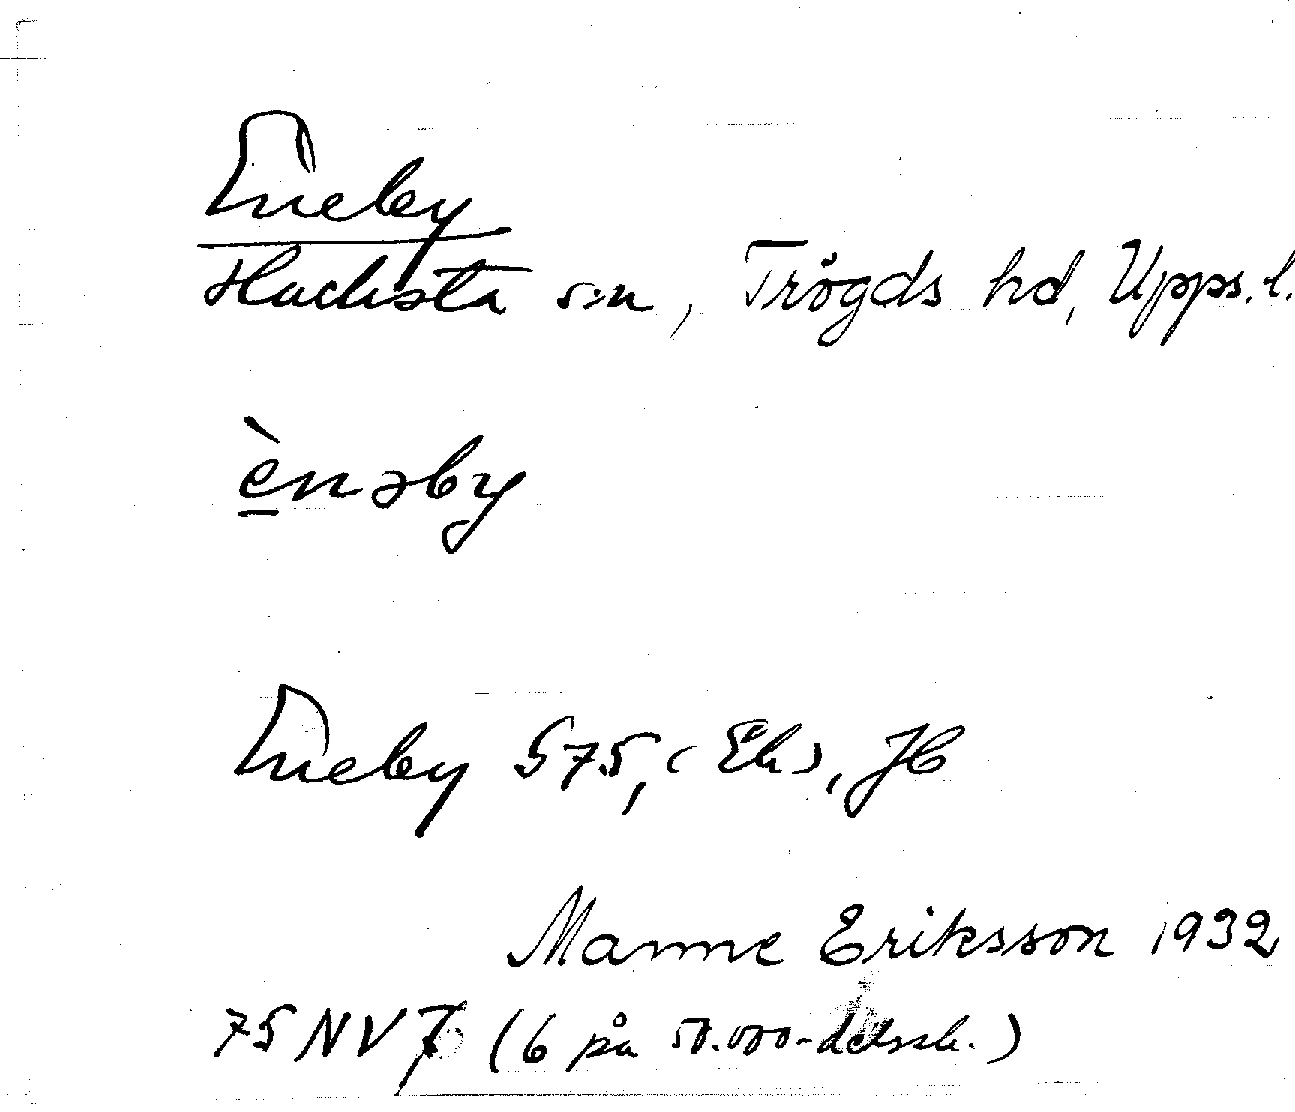 Eneby
Hacksta sn, Trögds hd, Upps. l.
ènəby
Eneby 575, (Ek), JB
Manne Eriksson 1932
75 NV 7 (6 på 50.000-delssk.)